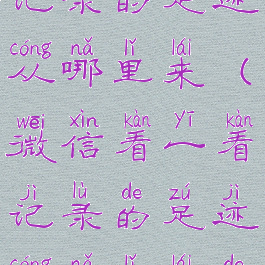 记录的足迹
cóng nǎ lǐ lái
从哪里来（
wēi xìn kàn yī kàn
微信看一看
jì lù de zú jì
记录的足迹
cóng nǎ lǐ lái de